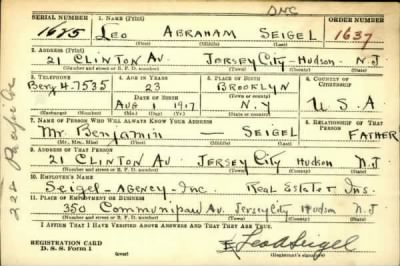 DNC
SERIAL NUMBER 1. NAME (Print) ORDER NUMBER
1625 LEO ABRAHAM SEIGEL 1637
(First) (Middle) (Last)
2. ADDRESS (Print)
21 CLINTON AV. JERSEY CITY - HUDSON - N.J
(Number and street or R. F. D. number) (Town) (County) (State)
3. TELEPHONE 4. AGE IN YEARS 5. PLACE OF BIRTH 6. COUNTRY OF CITIZENSHIP
Berg 4.7535 23 BROOKLYN
DATE OF BIRTH (Town or county)
AUG 1917 N.Y U.S.A
(Exchange) (Number) (Mo.) (Day) (Yr.) (State or country)
7. NAME OF PERSON WHO WILL ALWAYS KNOW YOUR ADDRESS 8. RELATIONSHIP OF THAT PERSON
Mr. Benjamin — SEIGEL FATHER
(Mr., Mrs., Miss) (First) (Middle) (Last)
9. ADDRESS OF THAT PERSON
21 CLINTON AV JERSEY CITY HUDSON N.J
(Number and street or R. F. D. number) (Town) (County) (State)
10. EMPLOYER'S NAME
Seigel - AGENCY - Inc. Real Estate & Ins.
11. PLACE OF EMPLOYMENT OR BUSINESS
350 Communipaw Av. Jersey City Hudson N.J
(Number and street or R. F. D. number) (Town) (County) (State)
I AFFIRM THAT I HAVE VERIFIED ABOVE ANSWERS AND THAT THEY ARE TRUE.
REGISTRATION CARD
D. S. S. Form 1
Leo A Seigel
(Registrant's signature)